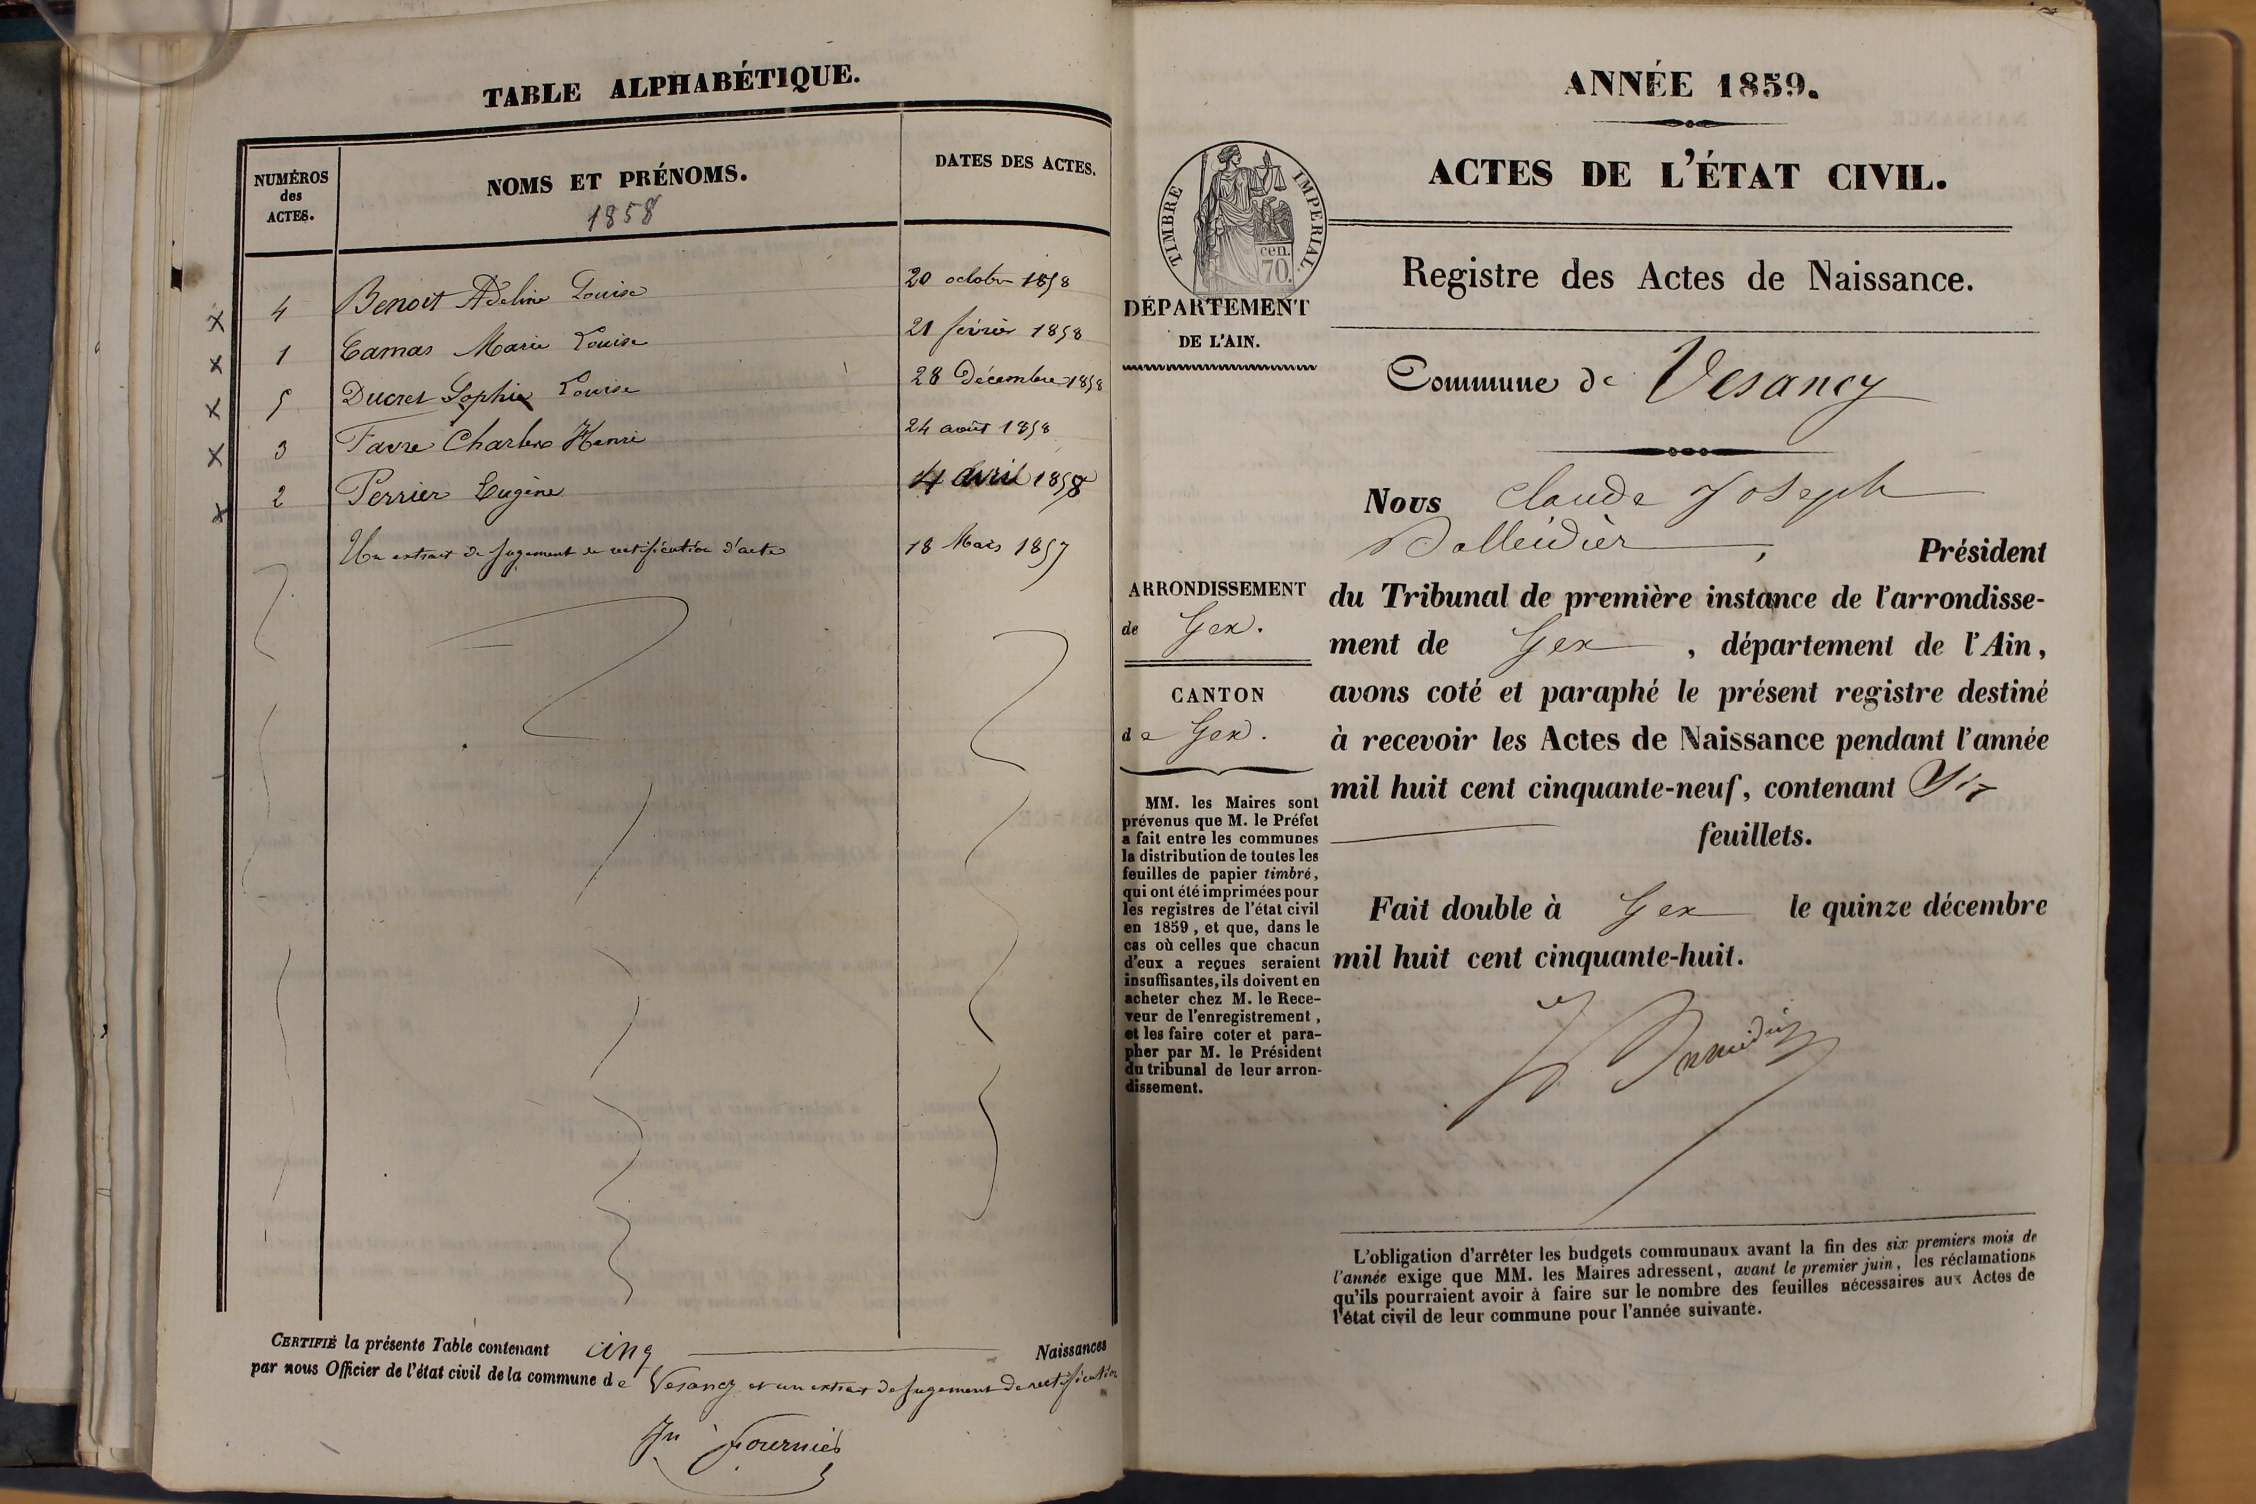 TABLE ALPHABÉTIQUE.
NUMÉROS
des
ACTES.
NOMS ET PRÉNOMS.
1858
DATES DES ACTES.
4 Benoit Adeline Louise 20 octobre 1858
1 Camas Marie Louise 21 février 1858
5 Ducret Sophie Louise 28 Décembre 1858
3 Favre Charles Henri 24 août 1858
2 Perrier Eugène 4 avril 1858
Un extrait de jugement de rectification d'acte 18 Mars 1857
CERTIFIÉ la présente Table contenant cinq Naissances
par nous Officier de l'état civil de la commune de Vesancy et un extrait de jugement de rectification
Fournier
ANNÉE 1859.
ACTES DE L'ÉTAT CIVIL.
TIMBRE IMPERIAL.
cen.
70.
Registre des Actes de Naissance.
DÉPARTEMENT
DE L'AIN.
Commune de Vesancy
ARRONDISSEMENT
de Gex.
CANTON
de Gex.
MM. les Maires sont
prévenus que M. le Préfet
a fait entre les communes
la distribution de toutes les
feuilles de papier timbré,
qui ont été imprimées pour
les registres de l'état civil
en 1859, et que, dans le
cas où celles que chacun
d'eux a reçues seraient
insuffisantes, ils doivent en
acheter chez M. le Rece-
veur de l'enregistrement,
et les faire coter et para-
pher par M. le Président
du tribunal de leur arron-
dissement.
NOUS Claude Joseph
, Président
du Tribunal de première instance de l'arrondisse-
ment de Gex, département de l'Ain,
avons coté et paraphé le présent registre destiné
à recevoir les Actes de Naissance pendant l'année
mil huit cent cinquante-neuf, contenant Six
feuillets.
Fait double à Gex le quinze décembre
mil huit cent cinquante-huit.
L'obligation d'arrêter les budgets communaux avant la fin des six premiers mois de
l'année exige que MM. les Maires adressent, avant le premier juin, les réclamations
qu'ils pourraient avoir à faire sur le nombre des feuilles nécessaires aux Actes de
l'état civil de leur commune pour l'année suivante.